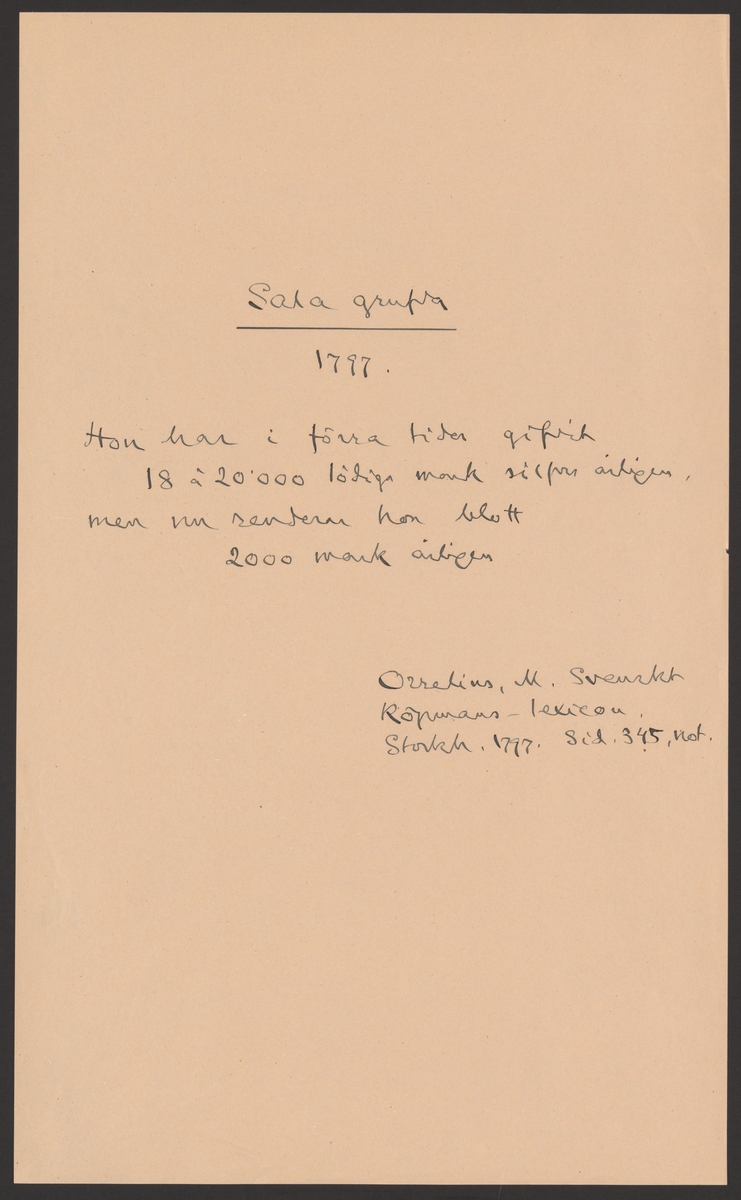 Sala grufva
1797.
Hon har i förra tider gifvit
18 à 20'000 lödiga mark silfver årligen,
men nu renderar hon blott
2000 mark årligen
Orrelius, M. Svenskt
Köpmans-lexicon.
Stockh. 1797. Sid. 345, not.